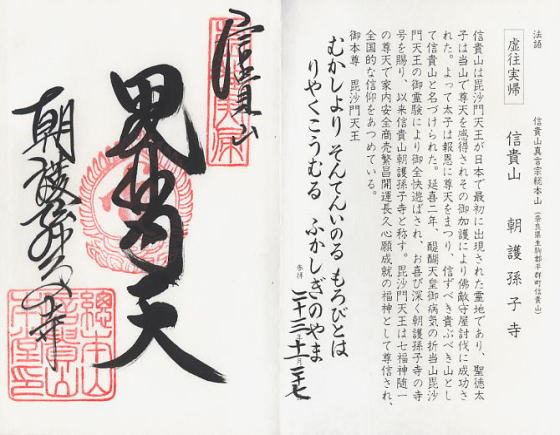 法語
虚往実帰
信貴山真言宗総本山（奈良県生駒郡平群町信貴山）
信貴山　朝護孫子寺
信貴山は毘沙門天王が日本で最初に出現された霊地であり、聖徳太
子は当山で尊天を感得されその御加護により佛敵守屋討伐に成功さ
れた。よって太子は報恩に尊天をまつり、信ずべき貴ぶべき山とし
て信貴山と名づけられた。延喜二年、醍醐天皇御病気の折当山毘沙
門天王の御霊験により御全快遊ばされ、お喜び深く朝護孫子寺の寺
号を賜り、以来信貴山朝護孫子寺と称す。毘沙門天王は七福神随一
の尊天で家内安全商売繁昌開運長久心願成就の福神として尊信され、
全国的な信仰をあつめている。
御本尊　毘沙門天王
むかしより　そんてんいのる　もろびとは
りやくこうむる　ふかしぎのやま
参拝
二十三年十一月二十七
信貴山
毘沙門天
朝護孫子寺
總本山
信貴山